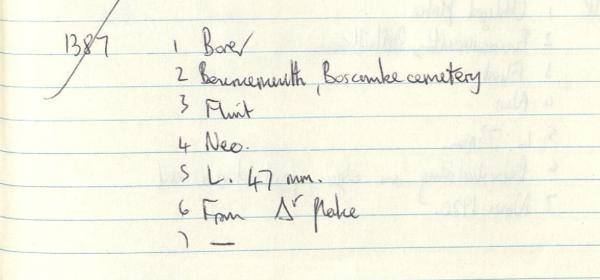 1387 1 Borer
2 Bournemouth, Boscombe cemetery
3 Flint
4 Neo.
5 L. 47 mm.
6 From Δr flake
7 —